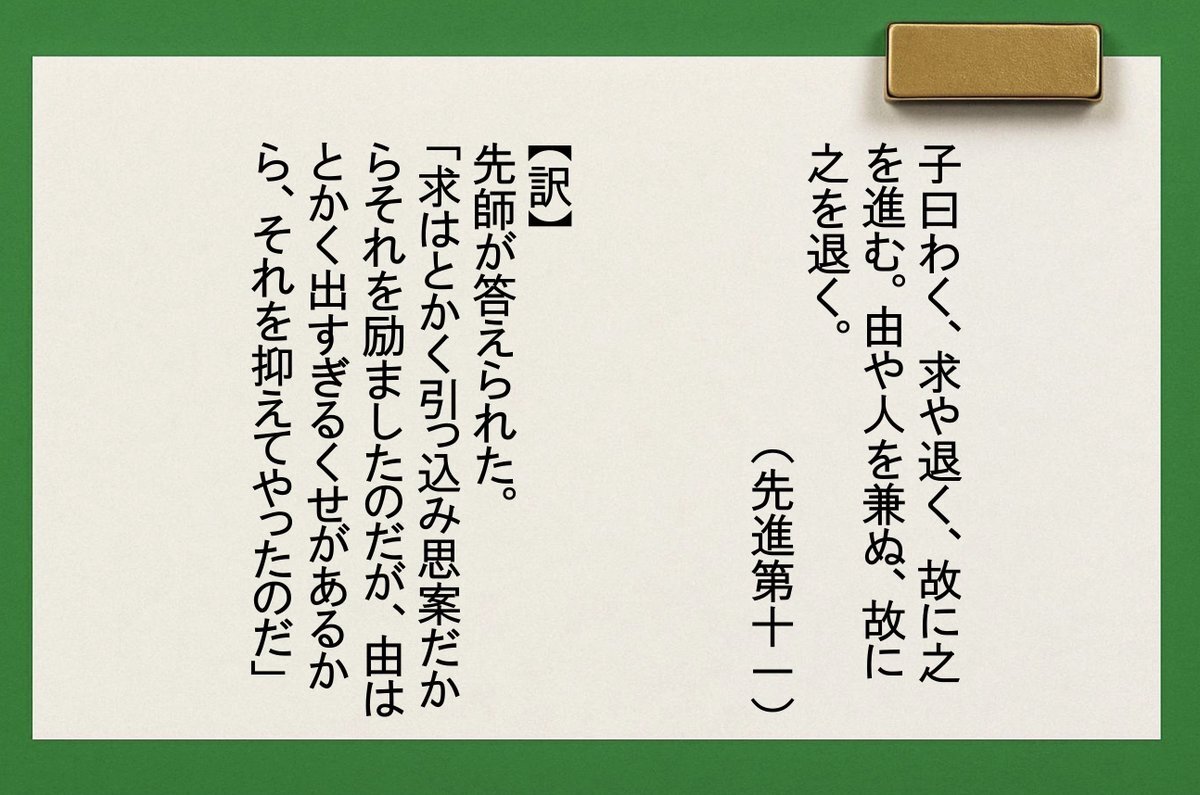 子曰わく、求や退く、故に之
を進む。由や人を兼ぬ、故に
之を退く。
（先進第十一）
【訳】
先師が答えられた。
「求はとかく引っ込み思案だか
らそれを励ましたのだが、由は
とかく出すぎるくせがあるか
ら、それを抑えてやったのだ」